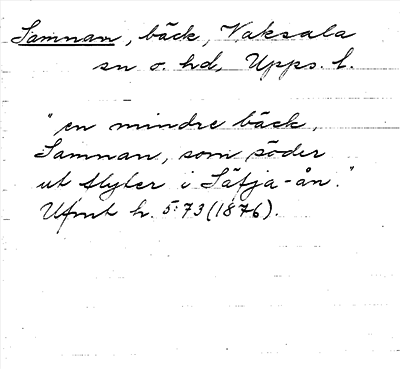 Samnan, bäck, Vaksala
sn o. hd, Upps. l.
"en mindre bäck,
Samnan, som söder
ut flyter i Säfja-ån."
Ufmt h. 5:73 (1876).